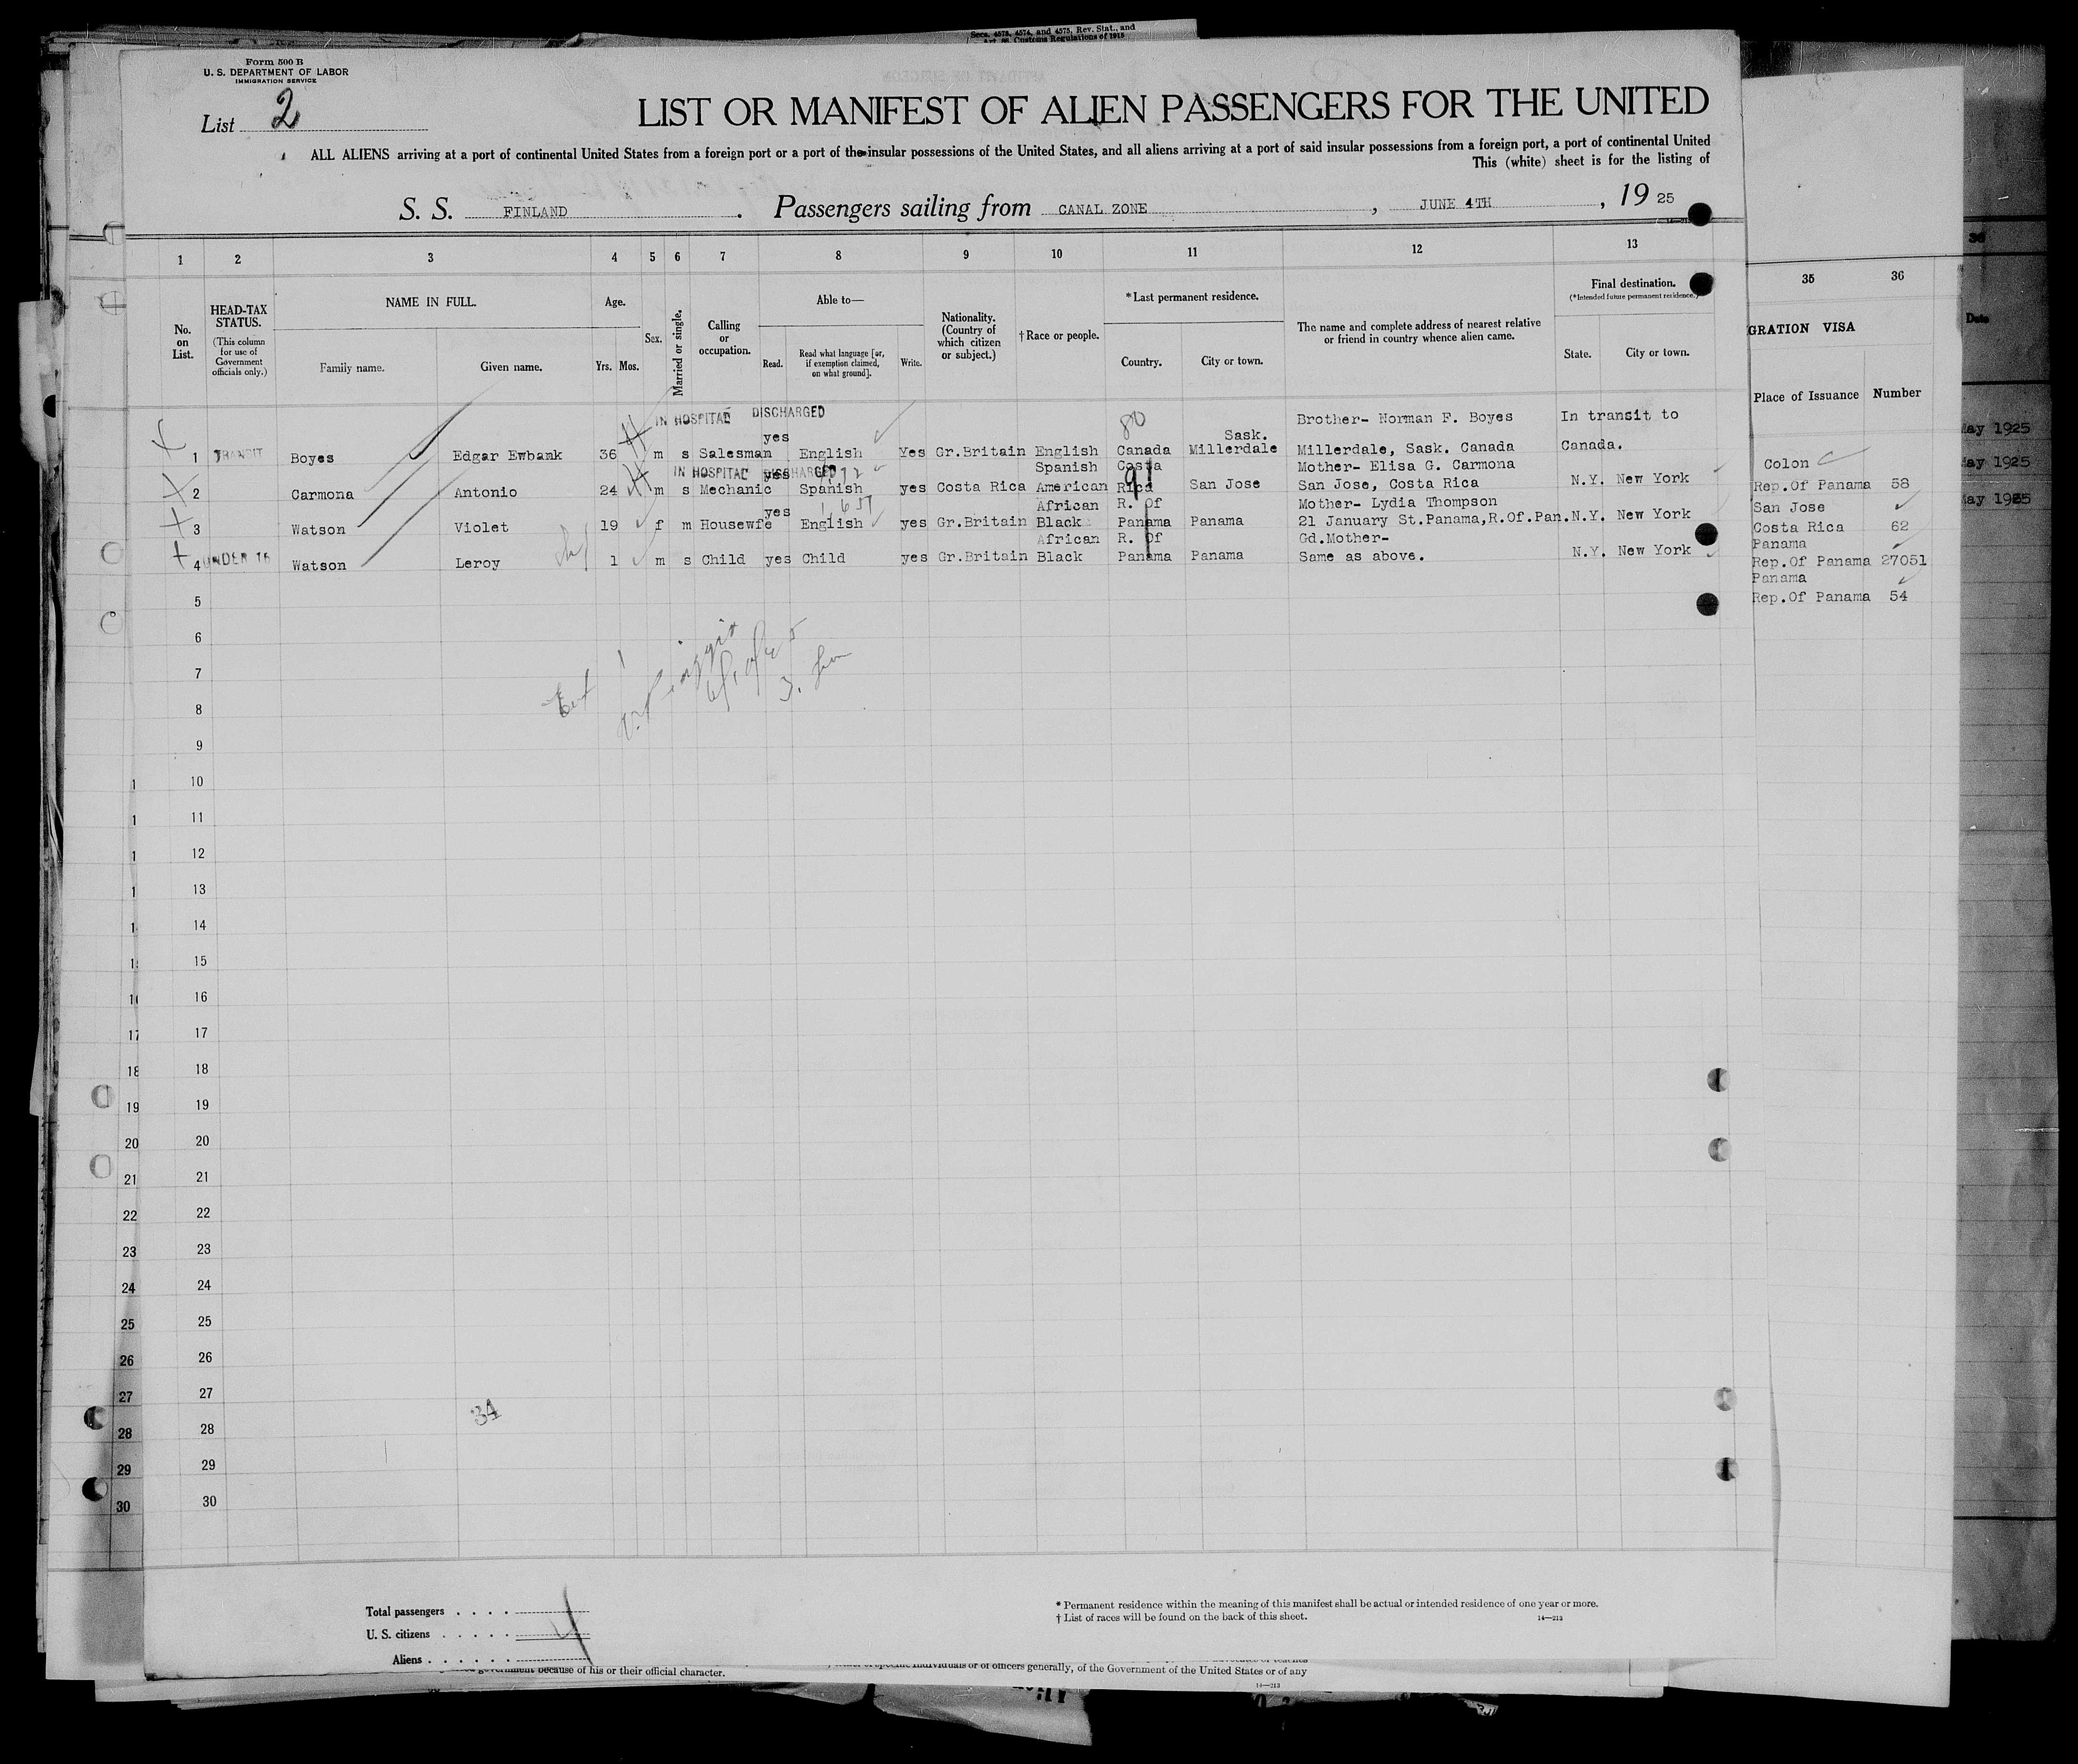 Secs. 4573, 4574, and 4575, Rev. Stat., and
Art. 86, Customs Regulations of 1915
Form 500 B
U. S. DEPARTMENT OF LABOR
IMMIGRATION SERVICE
List 2
LIST OR MANIFEST OF ALIEN PASSENGERS FOR THE UNITED
ALL ALIENS arriving at a port of continental United States from a foreign port or a port of the insular possessions of the United States, and all aliens arriving at a port of said insular possessions from a foreign port, a port of continental United
This (white) sheet is for the listing of
S. S. FINLAND. Passengers sailing from CANAL ZONE, JUNE 4TH, 19 25
1 2 3 4 5 6 7 8 9 10 11 12 13
No. on List.
HEAD-TAX STATUS.
(This column for use of Government officials only.)
NAME IN FULL.
Family name. Given name.
Age.
Yrs. Mos.
Sex.
Married or single.
Calling or occupation.
Able to—
Read. Read what language [or, if exemption claimed, on what ground]. Write.
Nationality. (Country of which citizen or subject.)
†Race or people.
*Last permanent residence.
Country. City or town.
The name and complete address of nearest relative or friend in country whence alien came.
Final destination.
(*Intended future permanent residence.)
State. City or town.
35 36
GRATION VISA
Place of Issuance Number
36
Date
IN HOSPITAL DISCHARGED
80
Brother- Norman F. Boyes In transit to
yes Sask.
1 TRANSIT Boyes Edgar Ewbank 36 m s Salesman English Yes Gr.Britain English Canada Millerdale Millerdale, Sask. Canada Canada.
IN HOSPITAL DISCHARGED
yes Spanish Costa Mother- Elisa G. Carmona
2 Carmona Antonio 24 m s Mechanic Spanish yes Costa Rica American Rica San Jose San Jose, Costa Rica N.Y. New York
91
yes African R. Of Mother- Lydia Thompson
3 Watson Violet 19 f m Housewfe English yes Gr.Britain Black Panama Panama 21 January St.Panama,R.Of.Pan. N.Y. New York
African R. Of Gd.Mother-
4 UNDER 16 Watson Leroy 1 m s Child yes Child yes Gr.Britain Black Panama Panama Same as above. N.Y. New York
Colon
Rep.Of Panama 58
San Jose
Costa Rica 62
Panama
Rep.Of Panama 27051
Panama
Rep.Of Panama 54
May 1925
May 1925
May 1925
5
6
7
8
9
10
11
12
13
14
15
16
17
18
19
20
21
22
23
24
25
26
27
28
29
30
17
18
19
20
21
22
23
24
25
26
27
28
29
30
34
Total passengers
U. S. citizens
Aliens
* Permanent residence within the meaning of this manifest shall be actual or intended residence of one year or more.
† List of races will be found on the back of this sheet.
14—213
government because of his or their official character.
individuals or of officers generally, of the Government of the United States or of any
14—213